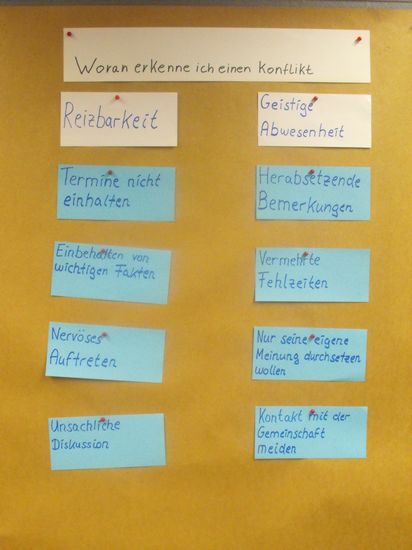 Woran erkenne ich einen Konflikt
Reizbarkeit
Geistige
Abwesenheit
Termine nicht
einhalten
Herabsetzende
Bemerkungen
Einbehalten von
wichtigen Fakten
Vermehrte
Fehlzeiten
Nervöses
Auftreten
Nur seine eigene
Meinung durchsetzen
wollen
Unsachliche
Diskussion
Kontakt mit der
Gemeinschaft
meiden